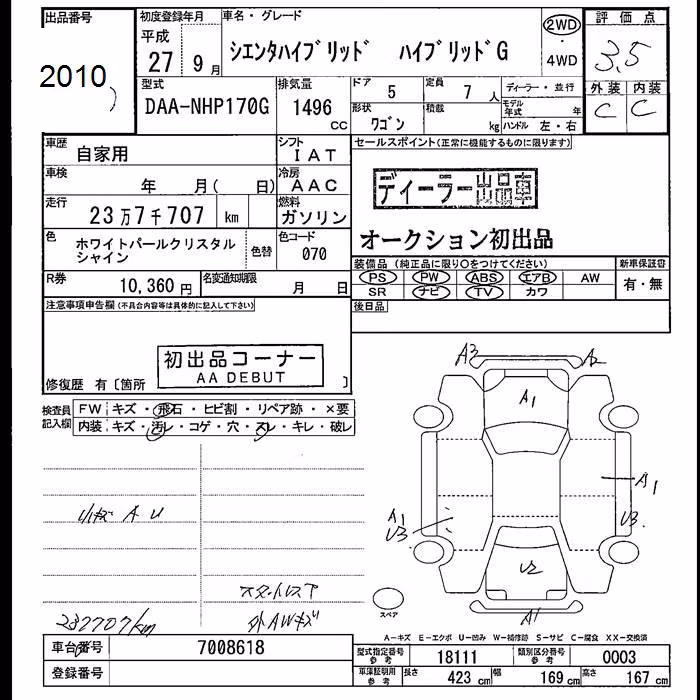 出品番号
2010
初度登録年月
平成
27 9 月
車名・グレード
シエンタハイブリッド ハイブリッドG
2WD
・
4WD
評価点
3.5
外装 内装
C C
型式
DAA-NHP170G
排気量
1496
CC
ドア 5
定員 7 人
ディーラー・並行
形状
ワゴン
積載
kg
モデル
年式 年
ハンドル 左・右
車歴
自家用
シフト
IAT
車検 年 月( 日)
冷房
AAC
走行
23万7千707 km
燃料
ガソリン
色
ホワイトパールクリスタル
シャイン
色替
色コード
070
R券
10,360 円
名変通知期限
月 日
セールスポイント(正常に機能するものに限ります)
ディーラー出品車
オークション初出品
装備品(純正品に限り○をつけてください)
PS PW ABS エアB AW
SR ナビ TV カワ
新車保証書
有・無
後日品
注意事項申告欄(不具合内容等は具体的に記入して下さい)
初出品コーナー
AA DEBUT
修復歴 有〔箇所 〕
検査員
記入欄
FW キズ・飛石・ヒビ割・リペア跡・×要
内装 キズ・汚レ・コゲ・穴・スレ・キレ・破レ
A3 A2
A1
A1
U3
A1
U3
U2
A1
小キズ A U
スタットレス下
外AWキズ
237707km
スペア
A-キズ E-エクボ U-凹み W-補修跡 S-サビ C-腐食 XX-交換済
車台番号 7008618
登録番号
型式指定番号
参考
18111
類別区分番号
参考
0003
車庫証明用
参考
長さ 423 cm 幅 169 cm 高さ 167 cm